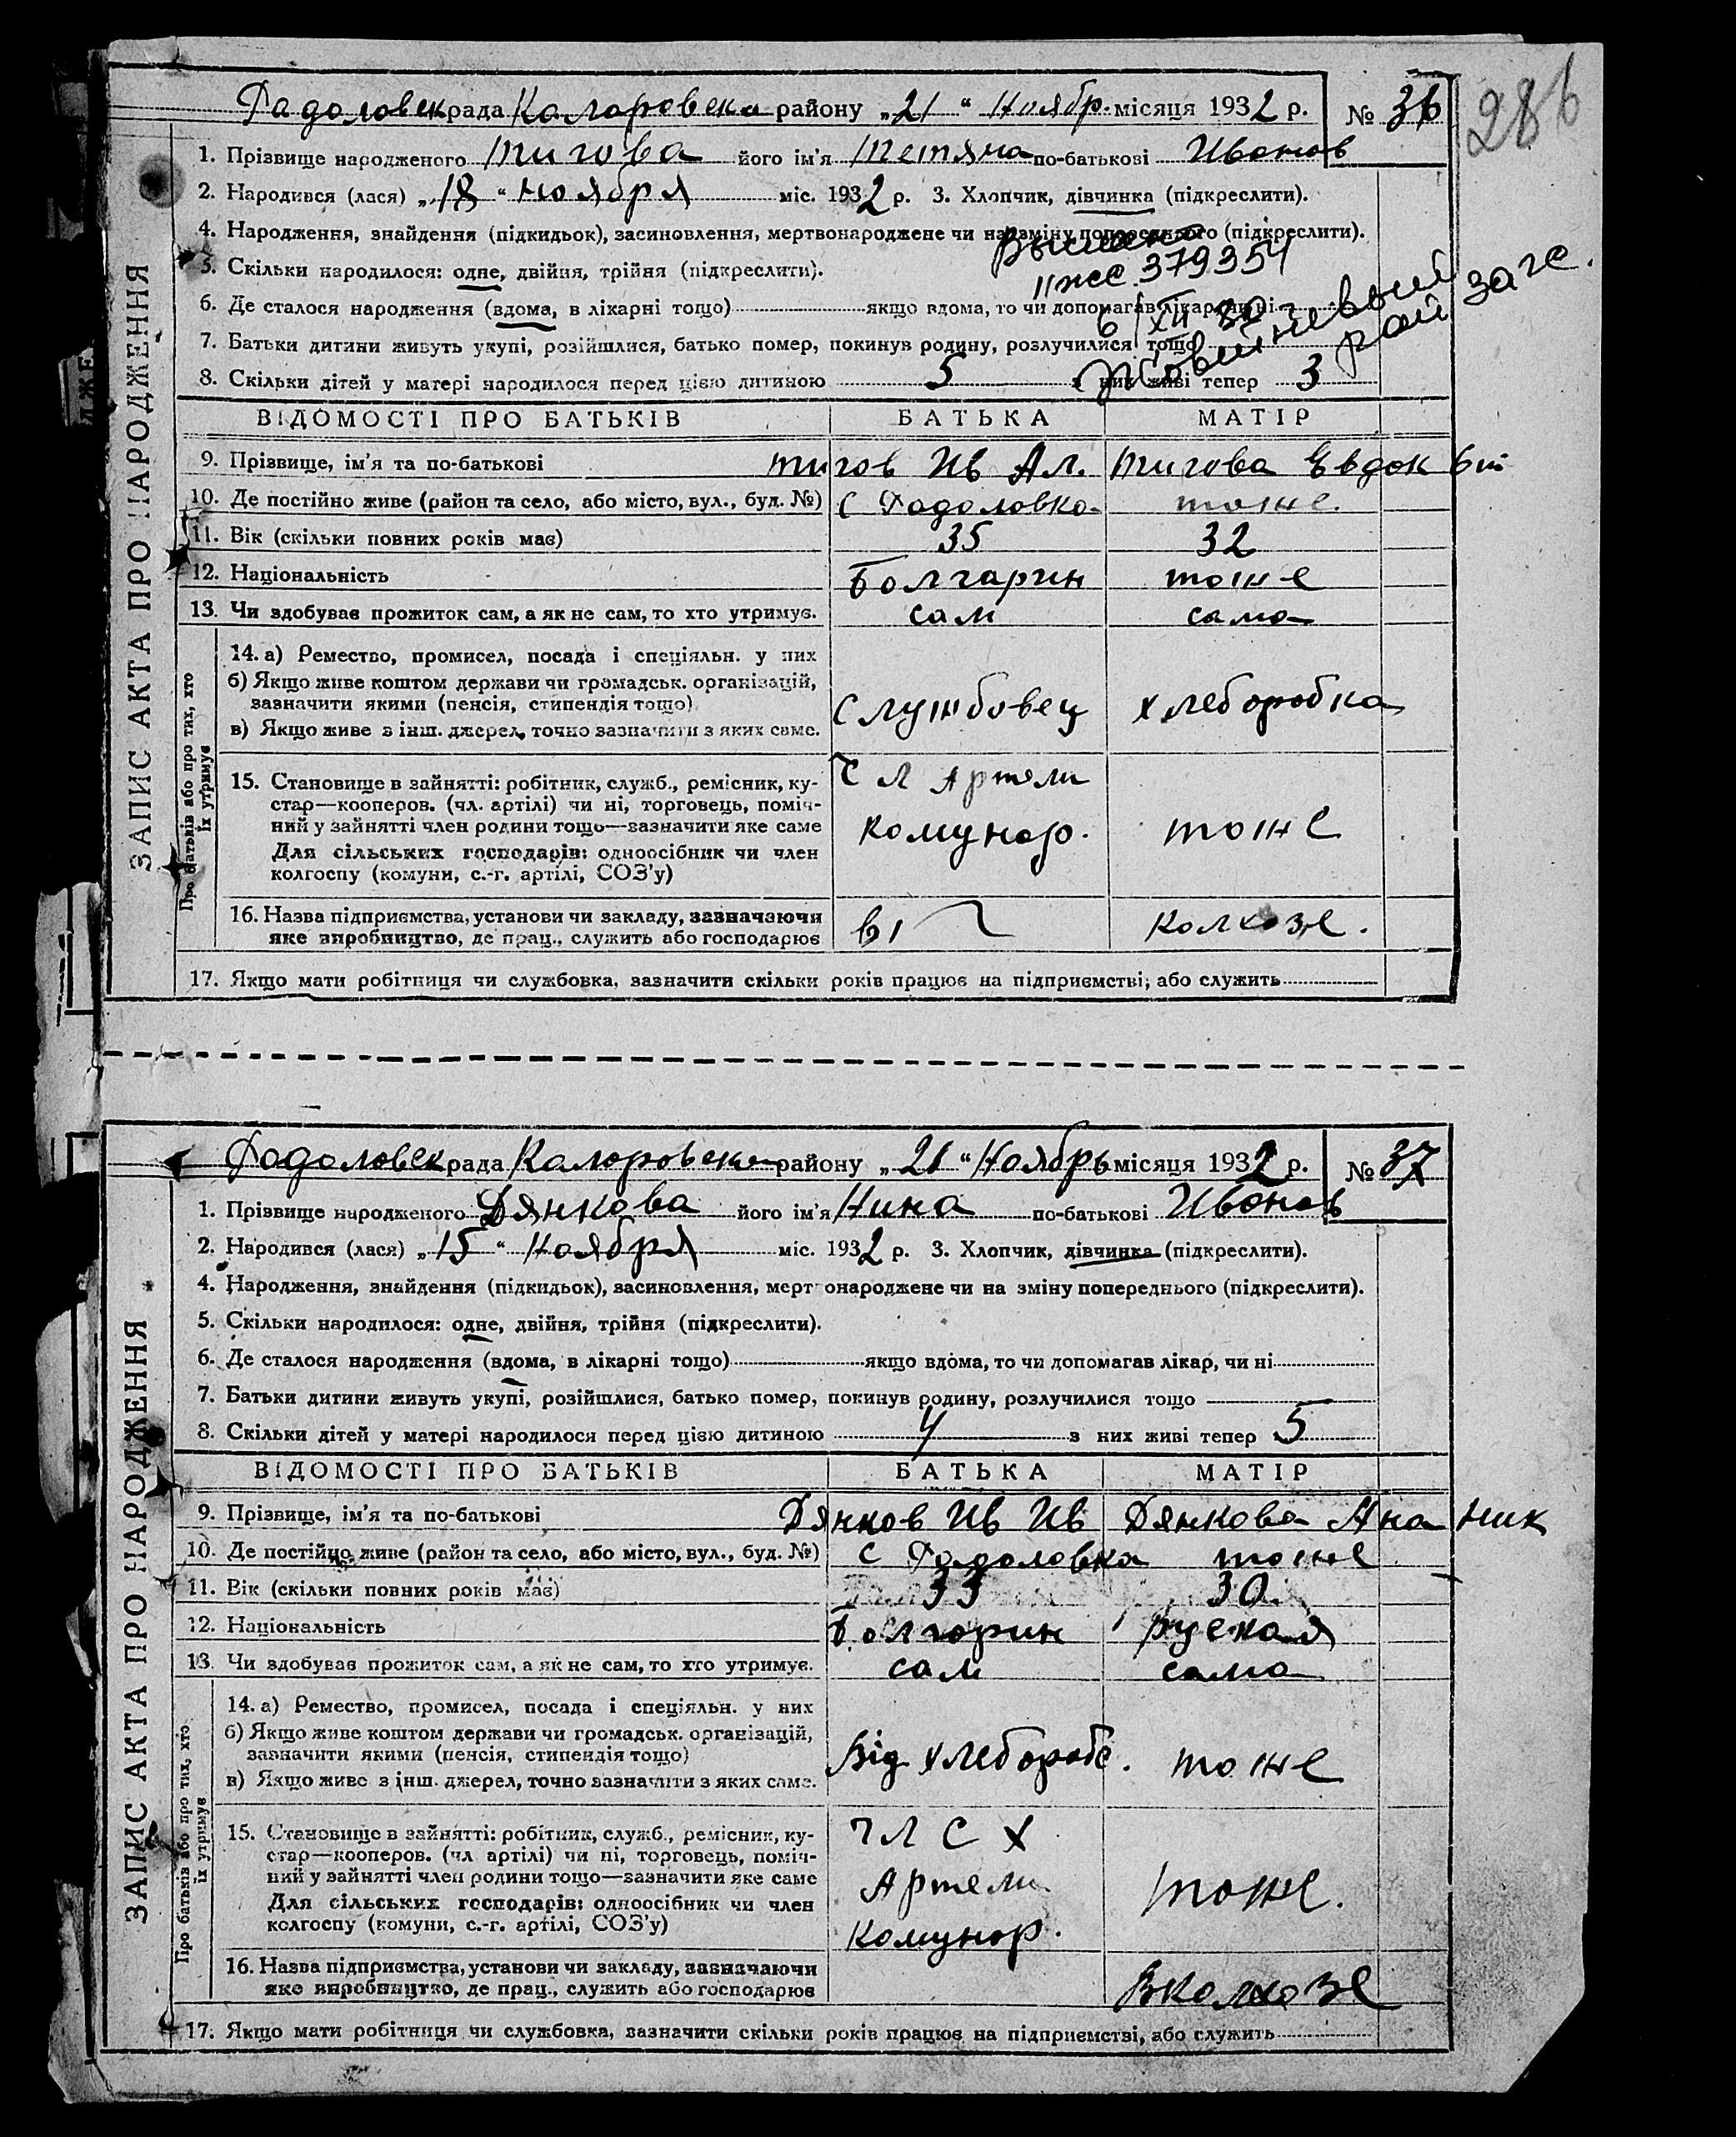 286
Радоловск рада Коларовско району „21“ Ноябр. місяця 1932 р. № 36
ЗАПИС АКТА ПРО НАРОДЖЕННЯ
1. Прізвище народженого Тигова його ім'я Тетяна по-батькові Иванов
2. Народився (лася) „18“ ноября міс. 1932 р. 3. Хлопчик, дівчинка (підкреслити).
4. Народження, знайдення (підкидьок), засиновлення, мертвонароджене чи на зміну попереднього (підкреслити).
5. Скільки народилося: одне, двійня, трійня (підкреслити).
379354
6. Де сталося народження (вдома, в лікарні тощо) якщо вдома, то чи допомагав лікар, чи ні
6/XII
загс.
7. Батьки дитини живуть укупі, розійшлися, батько помер, покинув родину, розлучилися тощо
8. Скільки дітей у матері народилося перед цією дитиною 5 з них живі тепер 3
ВІДОМОСТІ ПРО БАТЬКІВ БАТЬКА МАТІР
9. Прізвище, ім'я та по-батькові тигов Ив Ал. тигова Евдок
10. Де постійно живе (район та село, або місто, вул., буд. №) с Радоловка тоже.
11. Вік (скільки повних років має) 35 32
12. Національність Болгарин тоже
13. Чи здобуває прожиток сам, а як не сам, то хто утримує. сам сама
Про батьків або про тих, хто їх утримує
14. а) Ремество, промисел, посада і спеціяльн. у них
б) Якщо живе коштом держави чи громадськ. організацій,
зазначити якими (пенсія, стипендія тощо) службовец хлеборобка
в) Якщо живе з інш. джерел, точно зазначити з яких саме.
15. Становище в зайнятті: робітник, служб., ремісник, ку-
стар—кооперов. (чл. артілі) чи ні, торговець, поміч-
ний у зайнятті член родини тощо—зазначити яке саме
Для сільських господарів: одноосібник чи член
колгоспу (комуни, с.-г. артілі, СОЗ'у)
Чл Артели
комунар. тоже
16. Назва підприємства, установи чи закладу, зазначаючи
яке виробництво, де прац., служить або господарює колхозе.
17. Якщо мати робітниця чи службовка, зазначити скільки років працює на підприємстві, або служить
Радоловск рада Коларовско району „21“ Ноябрь місяця 1932 р. № 37
ЗАПИС АКТА ПРО НАРОДЖЕННЯ
1. Прізвище народженого Дянкова його ім'я Нина по-батькові Иванов
2. Народився (лася) „15“ Ноября міс. 1932 р. 3. Хлопчик, дівчинка (підкреслити).
4. Народження, знайдення (підкидьок), засиновлення, мертвонароджене чи на зміну попереднього (підкреслити).
5. Скільки народилося: одне, двійня, трійня (підкреслити).
6. Де сталося народження (вдома, в лікарні тощо) якщо вдома, то чи допомагав лікар, чи ні
7. Батьки дитини живуть укупі, розійшлися, батько помер, покинув родину, розлучилися тощо
8. Скільки дітей у матері народилося перед цією дитиною 4 з них живі тепер 5
ВІДОМОСТІ ПРО БАТЬКІВ БАТЬКА МАТІР
9. Прізвище, ім'я та по-батькові Дянков Ив Ив Дянкова Ана Ник
10. Де постійно живе (район та село, або місто, вул., буд. №) с Радоловка тоже
11. Вік (скільки повних років має) 33 30.
12. Національність Болгорин руская
13. Чи здобуває прожиток сам, а як не сам, то хто утримує. сам сама
Про батьків або про тих, хто їх утримує
14. а) Ремество, промисел, посада і спеціяльн. у них
б) Якщо живе коштом держави чи громадськ. організацій,
зазначити якими (пенсія, стипендія тощо)
в) Якщо живе з інш. джерел, точно зазначити з яких саме.
Від хлебороб. тоже
15. Становище в зайнятті: робітник, служб., ремісник, ку-
стар—кооперов. (чл. артілі) чи ні, торговець, поміч-
ний у зайнятті член родини тощо—зазначити яке саме
Для сільських господарів: одноосібник чи член
колгоспу (комуни, с.-г. артілі, СОЗ'у)
Чл С Х
Артели тоже.
Комунар.
16. Назва підприємства, установи чи закладу, зазначаючи
яке виробництво, де прац., служить або господарює Вколхозе
17. Якщо мати робітниця чи службовка, зазначити скільки років працює на підприємстві, або служить